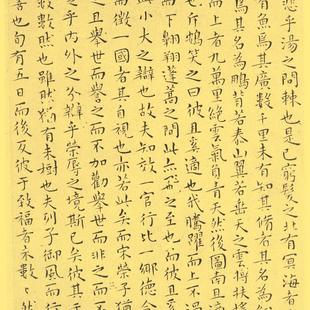 悲乎湯之問棘也是已窮髮之北有冥海者
有魚焉其廣數千里未有知其脩者其名為
焉其名為鵬背若泰山翼若垂天之雲摶扶搖
而上者九萬里絕雲氣負青天然後圖南且適
斥鴳笑之曰彼且奚適也我騰躍而上不過
而下翱翔蓬蒿之間此亦飛之至也而彼且奚
此小大之辯也故夫知效一官行比一鄉德合
而徵一國者其自視也亦若此矣而宋榮子猶
之且舉世而譽之而不加勸舉世而非之而
乎內外之分辯乎榮辱之境斯已矣彼其
數數然也雖然猶有未樹也夫列子御風而行
善也旬有五日而後反彼於致福者未數數然